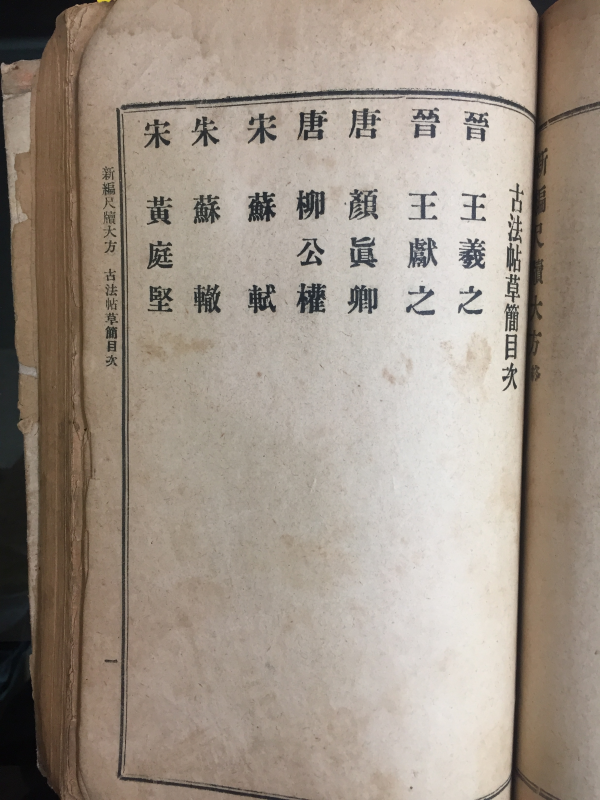 新編尺牘大方 終
古法帖草簡目次
晉 王羲之
晉 王獻之
唐 顏眞卿
唐 柳公權
宋 蘇軾
朱 蘇轍
宋 黃庭堅
新編尺牘大方 古法帖草簡目次
一